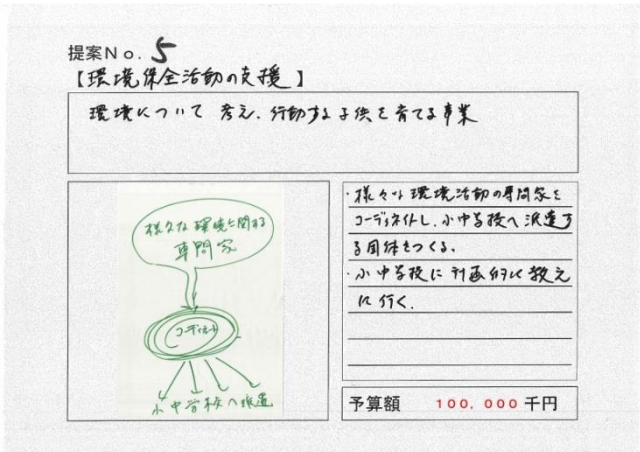 提案No. 5
【環境保全活動の支援】
環境について 考え、行動する子供を育てる事業
様々な環境に関する
専門家
コーディネート
小中学校へ派遣
・様々な環境活動の専門家を
コーディネイトし、小中学校へ派遣す
る団体をつくる。
・小中学校に計画的に教え
に行く。
予算額 100,000千円